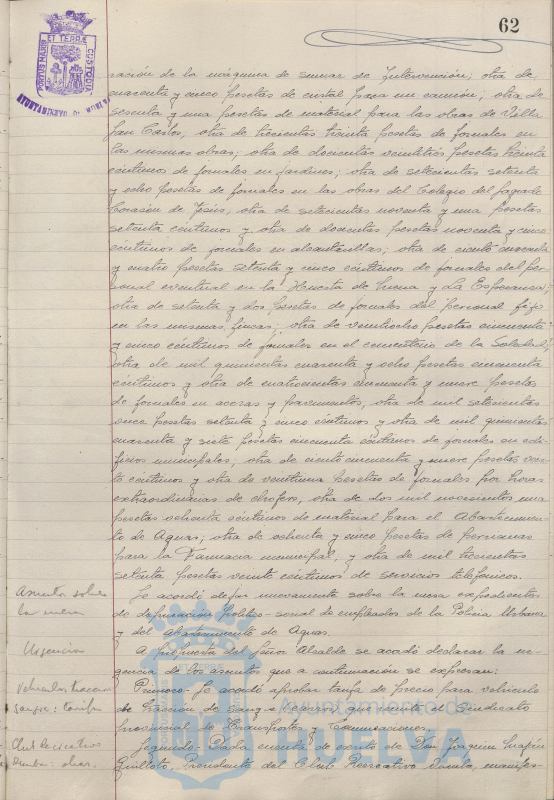 62
PORTUS MARIS ET TERRÆ CUSTODIA
AYUNTAMIENTO DE
ración de la máquina de sumar de Intervención; otra de
cuarenta y cinco pesetas de cristal para un camión; otra de
sesenta y una pesetas de material para las obras de Villa
San Carlos, otra de trescientas treinta pesetas de jornales en
las mismas obras; otra de doscientas veintitrés pesetas treinta
céntimos de jornales en jardines; otra de setecientas setenta
y ocho pesetas de jornales en las obras del Colegio del Sagrado
Corazón de Jesús, otra de setecientas noventa y una pesetas
setenta céntimos y otra de doscientas pesetas noventa y cinco
céntimos de jornales en alcantarillas; otra de ciento cincuenta
y cuatro pesetas setenta y cinco céntimos de jornales del per-
sonal eventual en la Huerta de Mena y La Esperanza;
otra de setenta y dos pesetas de jornales del personal fijo
en las mismas fincas; otra de veintiocho pesetas cincuenta
y cinco céntimos de jornales en el cementerio de la Soledad;
otra de mil quinientas cuarenta y ocho pesetas cincuenta
céntimos y otra de cuatrocientas cincuenta y nueve pesetas
de jornales en aceras y pavimentos, otra de mil setecientas
once pesetas setenta y cinco céntimos y otra de mil quinientas
cuarenta y siete pesetas cincuenta céntimos de jornales en edi-
ficios municipales, otra de ciento cincuenta y nueve pesetas vein-
te céntimos y otra de veintiuna pesetas de jornales por horas
extraordinarias de chofers, otra de dos mil novecientas una
pesetas ochenta céntimos de material para el Abastecimien-
to de Aguas; otra de ochenta y cinco pesetas de persianas
para la Farmacia municipal; y otra de mil trescientas
setenta pesetas veinte céntimos de servicios telefónicos.
Asuntos sobre
la mesa
Se acordó dejar nuevamente sobre la mesa expedientes
de depuración politico-social de empleados de la Policía Urbana
y del Abastecimiento de Aguas.
Urgencia
A propuesta del Señor Alcalde se acordó declarar la ur-
gencia de los asuntos que a continuación se expresan:
Vehículos tracción
sangre: tarifa
Primero- Se acordó aprobar tarifa de precio para vehículo
de tracción de sangre ligeros, que remite el Sindicato
provincial de Transportes y Comunicaciones.
Club Recreativo
Onuba: obras.
Segundo- Dada cuenta de escrito de Don Joaquín
Quilloto, Presidente del Club Recreativo Onuba, manifes-
Ayuntamiento de
HUELVA